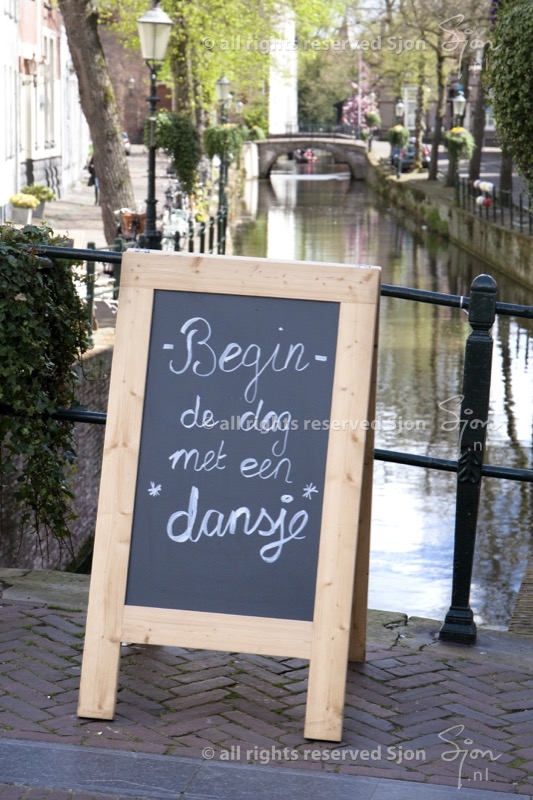 © all rights reserved Sjon Sjon .nl
-Begin-
de dag
© all rights reserved Sjon Sjon .nl
met een
* dansje *
© all rights reserved Sjon Sjon .nl